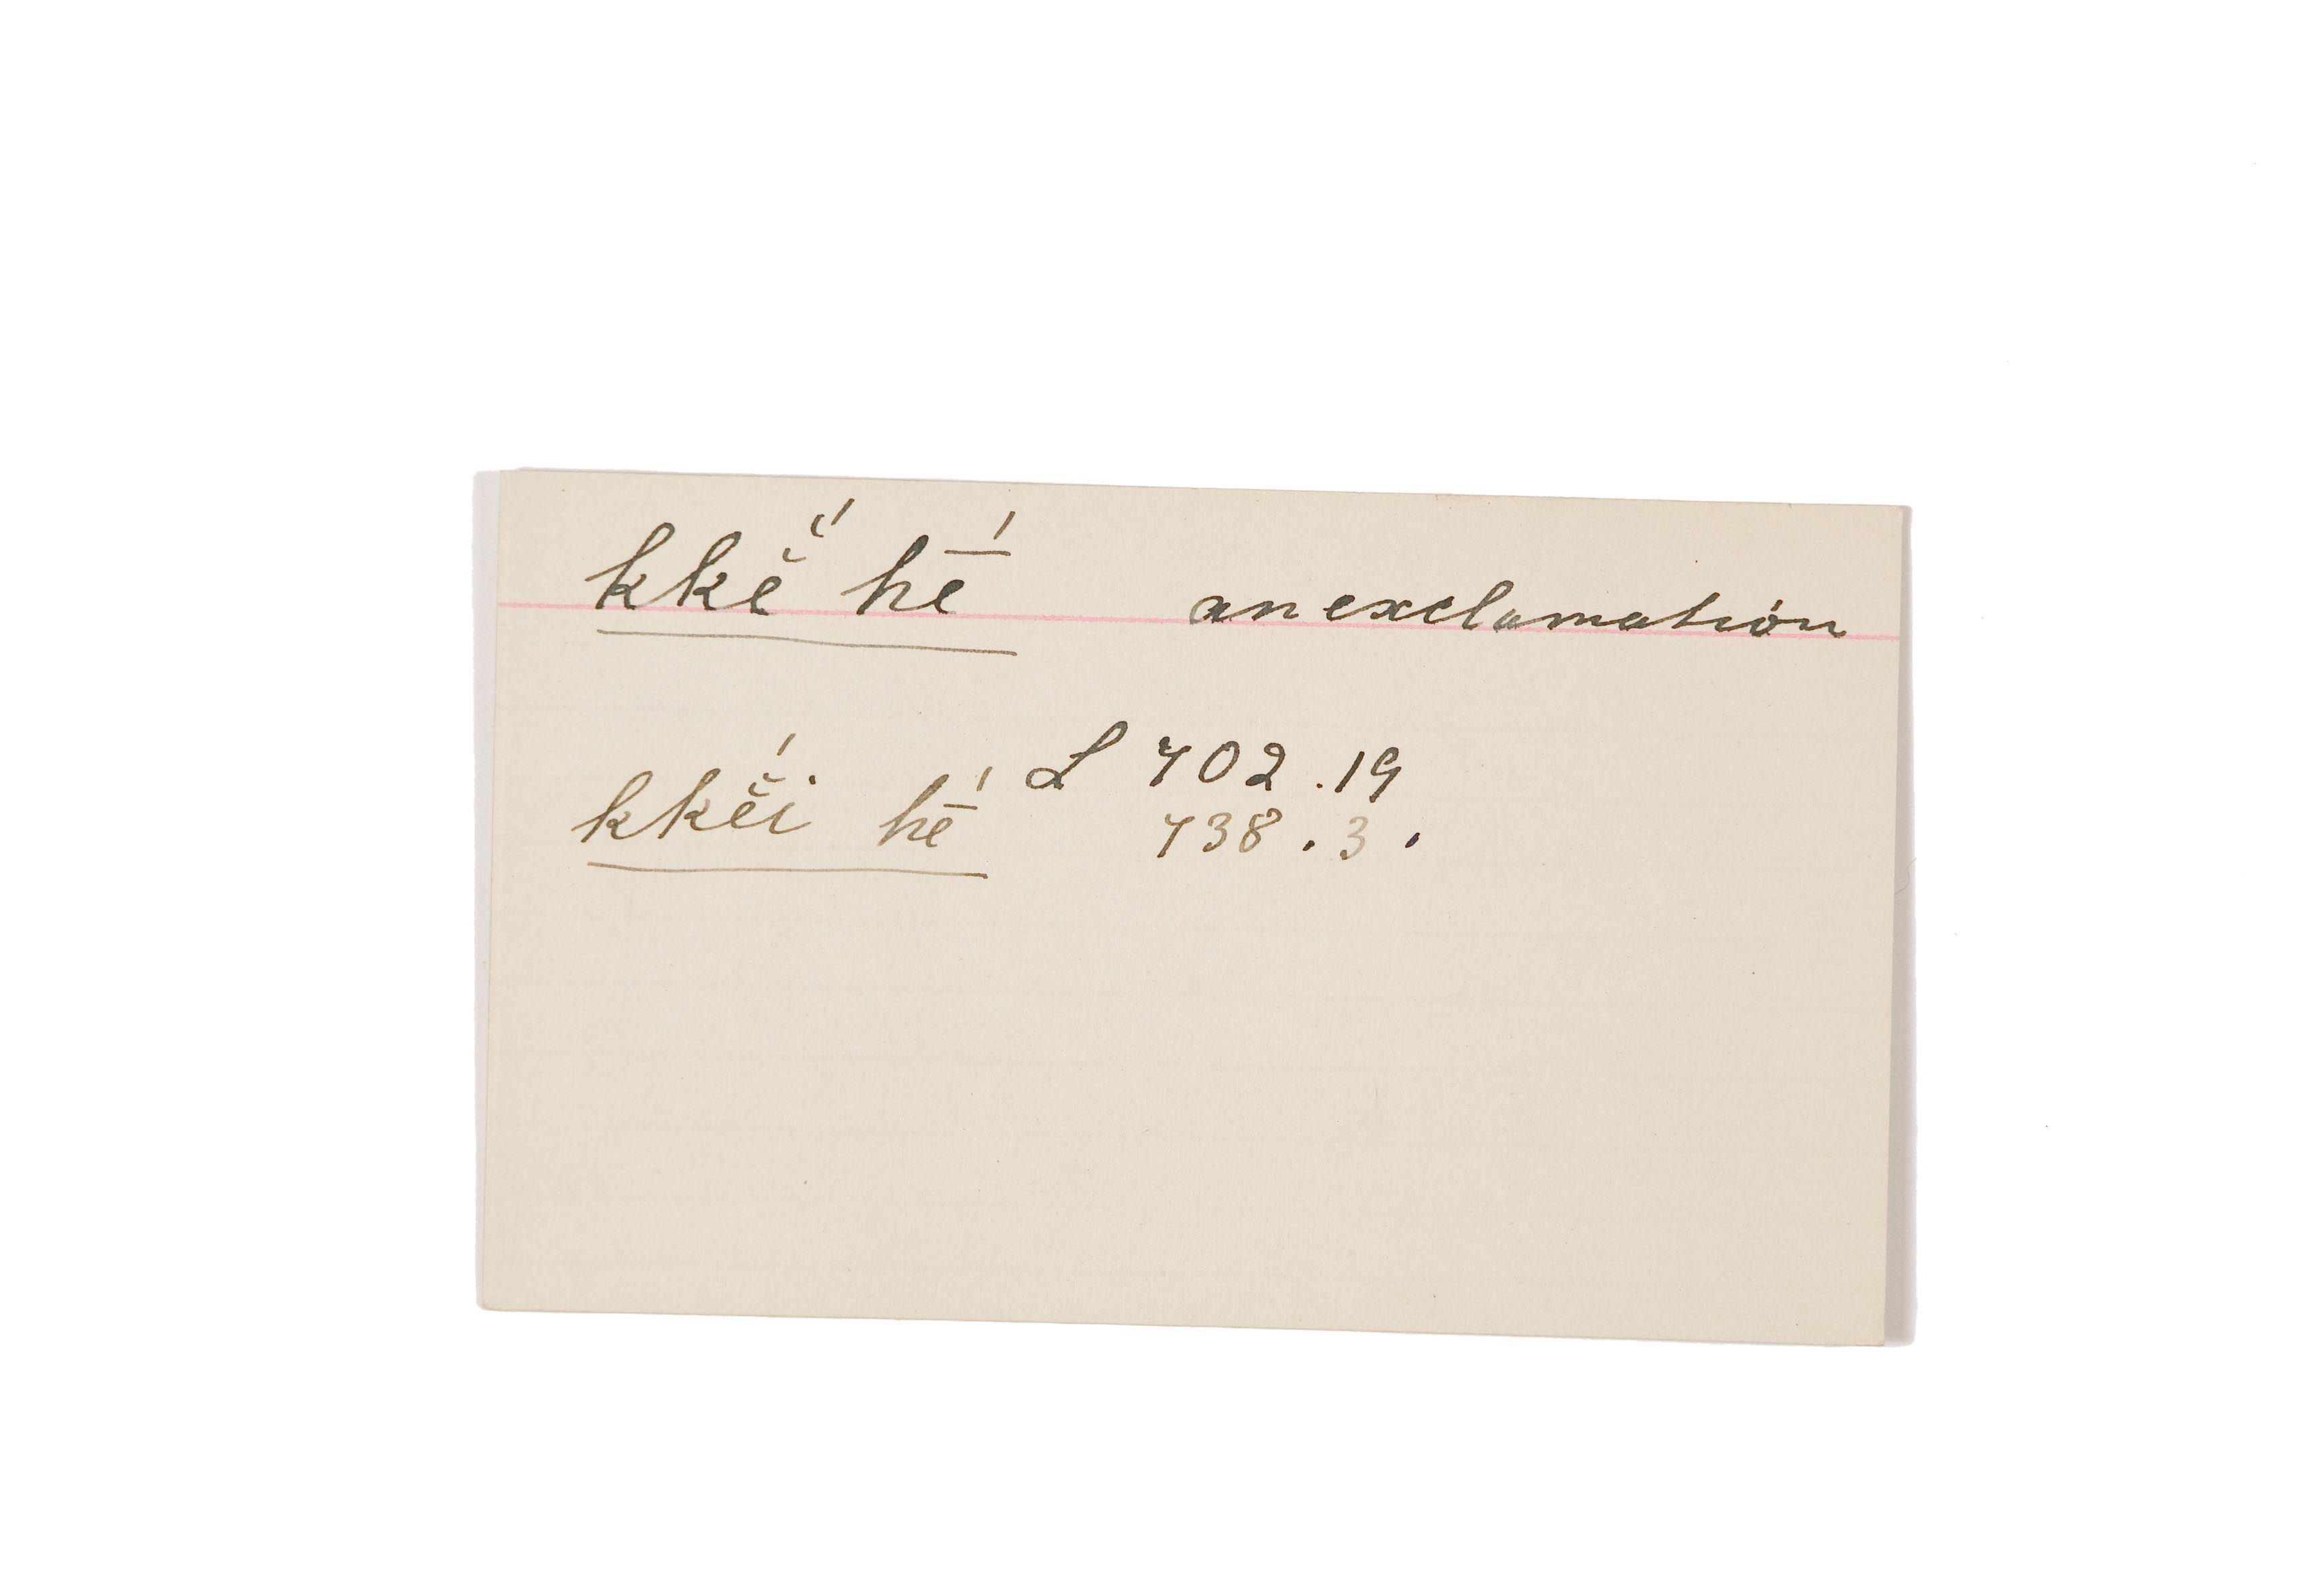 kkĕ̆́ hḗ an exclamation
kkĕ̆́i hḗ L 402.19
438.3.